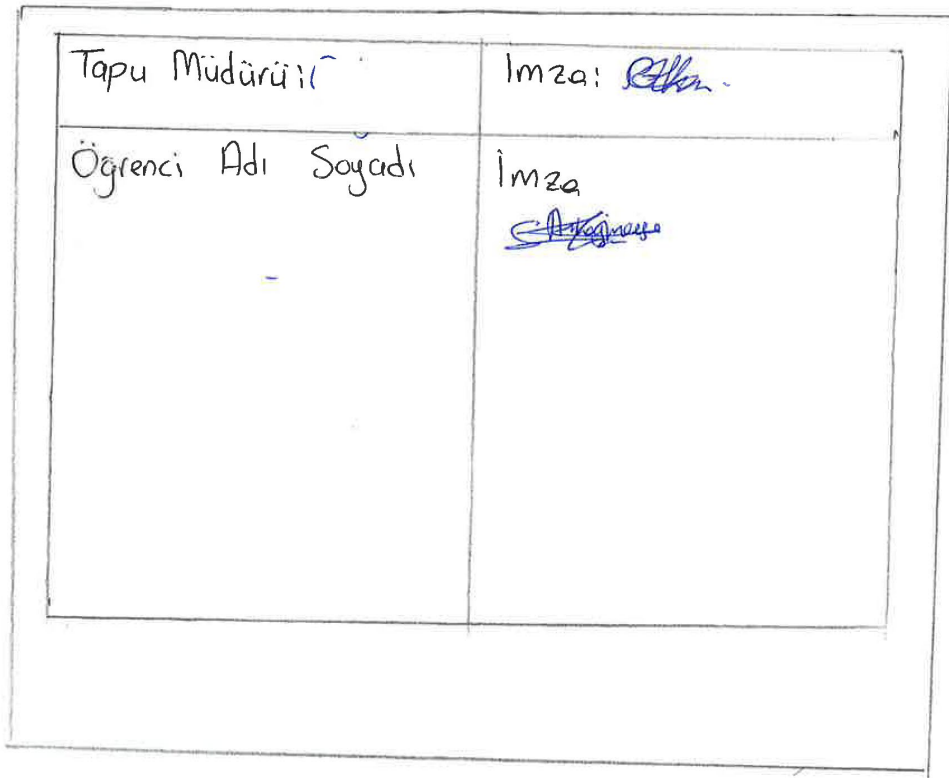 Tapu Müdürü:
İmza:
Öğrenci Adı Soyadı
İmza